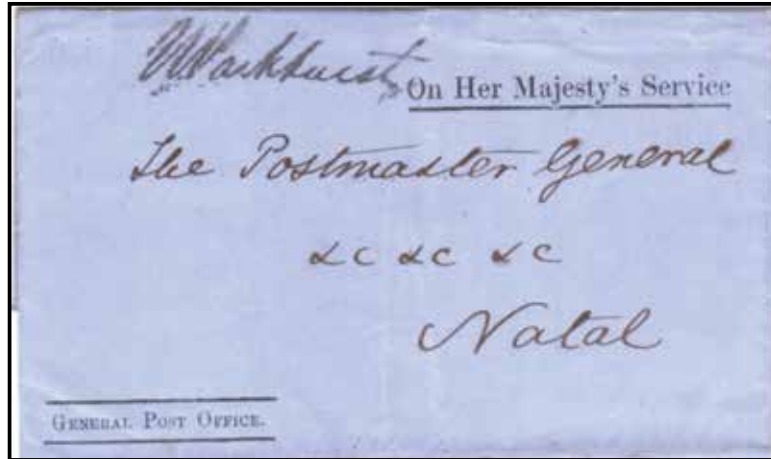 On Her Majesty's Service
The Postmaster General
&c &c &c
Natal
GENERAL POST OFFICE.